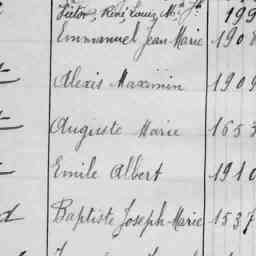 Victor, René Louis Mie Jh 199
Emmanuel Jean Marie 1908
Alexis Maximin 1909
Auguste Marie 1653
Emile Albert 1910
Baptiste Joseph-Marie 1537